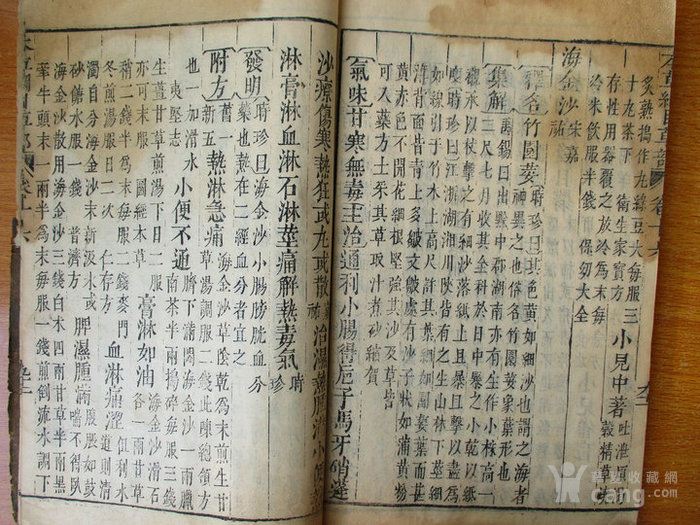 本草綱目草部 卷十六 九一
炙熱搗作丸綠豆大每服三
十九茶下 衛生家寶方 小兒中著 吐泄 穀精草
存性用器覆之放冷為末每
冷米飲服半錢 保幼大全
海金沙 宋嘉祐
釋名 竹園荽 時珍曰其色黃如細沙也謂之海者
神異之也俗名竹園荽象葉形也
集解 禹錫曰出黔中郡湖南亦有生作小株高一
二尺七月收其全科於日中暴之小乾以紙
承以杖擊之有細沙落紙上且暴且擊以盡為
度時珍曰江浙湖湘川陝皆有之生山林下莖細
如線引於竹木上高尺許其葉細如園荽葉而甚
薄背面皆青上多皺文皺處有沙子狀如蒲黃粉
黃赤色不開花細根堅強其沙及草皆
可入藥方士采其草取汁煮砂縮賀
氣味 甘寒無毒 主治 通利小腸得巵子馬牙硝蓬
沙療傷寒熱狂或丸或散嘉祐 治濕熱腫滿小便熱
淋膏淋血淋石淋莖痛解熱毒氣時珍
發明 時珍曰海金沙小腸膀胱血分
藥也熱在二經血分者宜之
附方 舊一新五 熱淋急痛 海金沙草陰乾為末煎生甘
草湯調服二錢此陳總領方
也一加滑水 夷堅志 小便不通 臍下滿悶海金沙一兩臘
南茶半兩搗碎每服三錢
生薑甘草煎湯下日二服
亦可末服 圖經本草 膏淋如油 海金沙滑石
各一兩甘草
稍二錢半為末每服二錢麥門
冬煎湯服日二次 仁存方 血淋痛澀 但利水
道則清
濁自分海金沙末新汲水或
砂餹水服一錢 普濟方 脾濕腫滿 腹脹如鼓
喘不得臥
海金沙散用海金沙三錢白朮四兩甘草半兩黑
牽牛頭末一兩半為末每服一錢煎倒流水調下